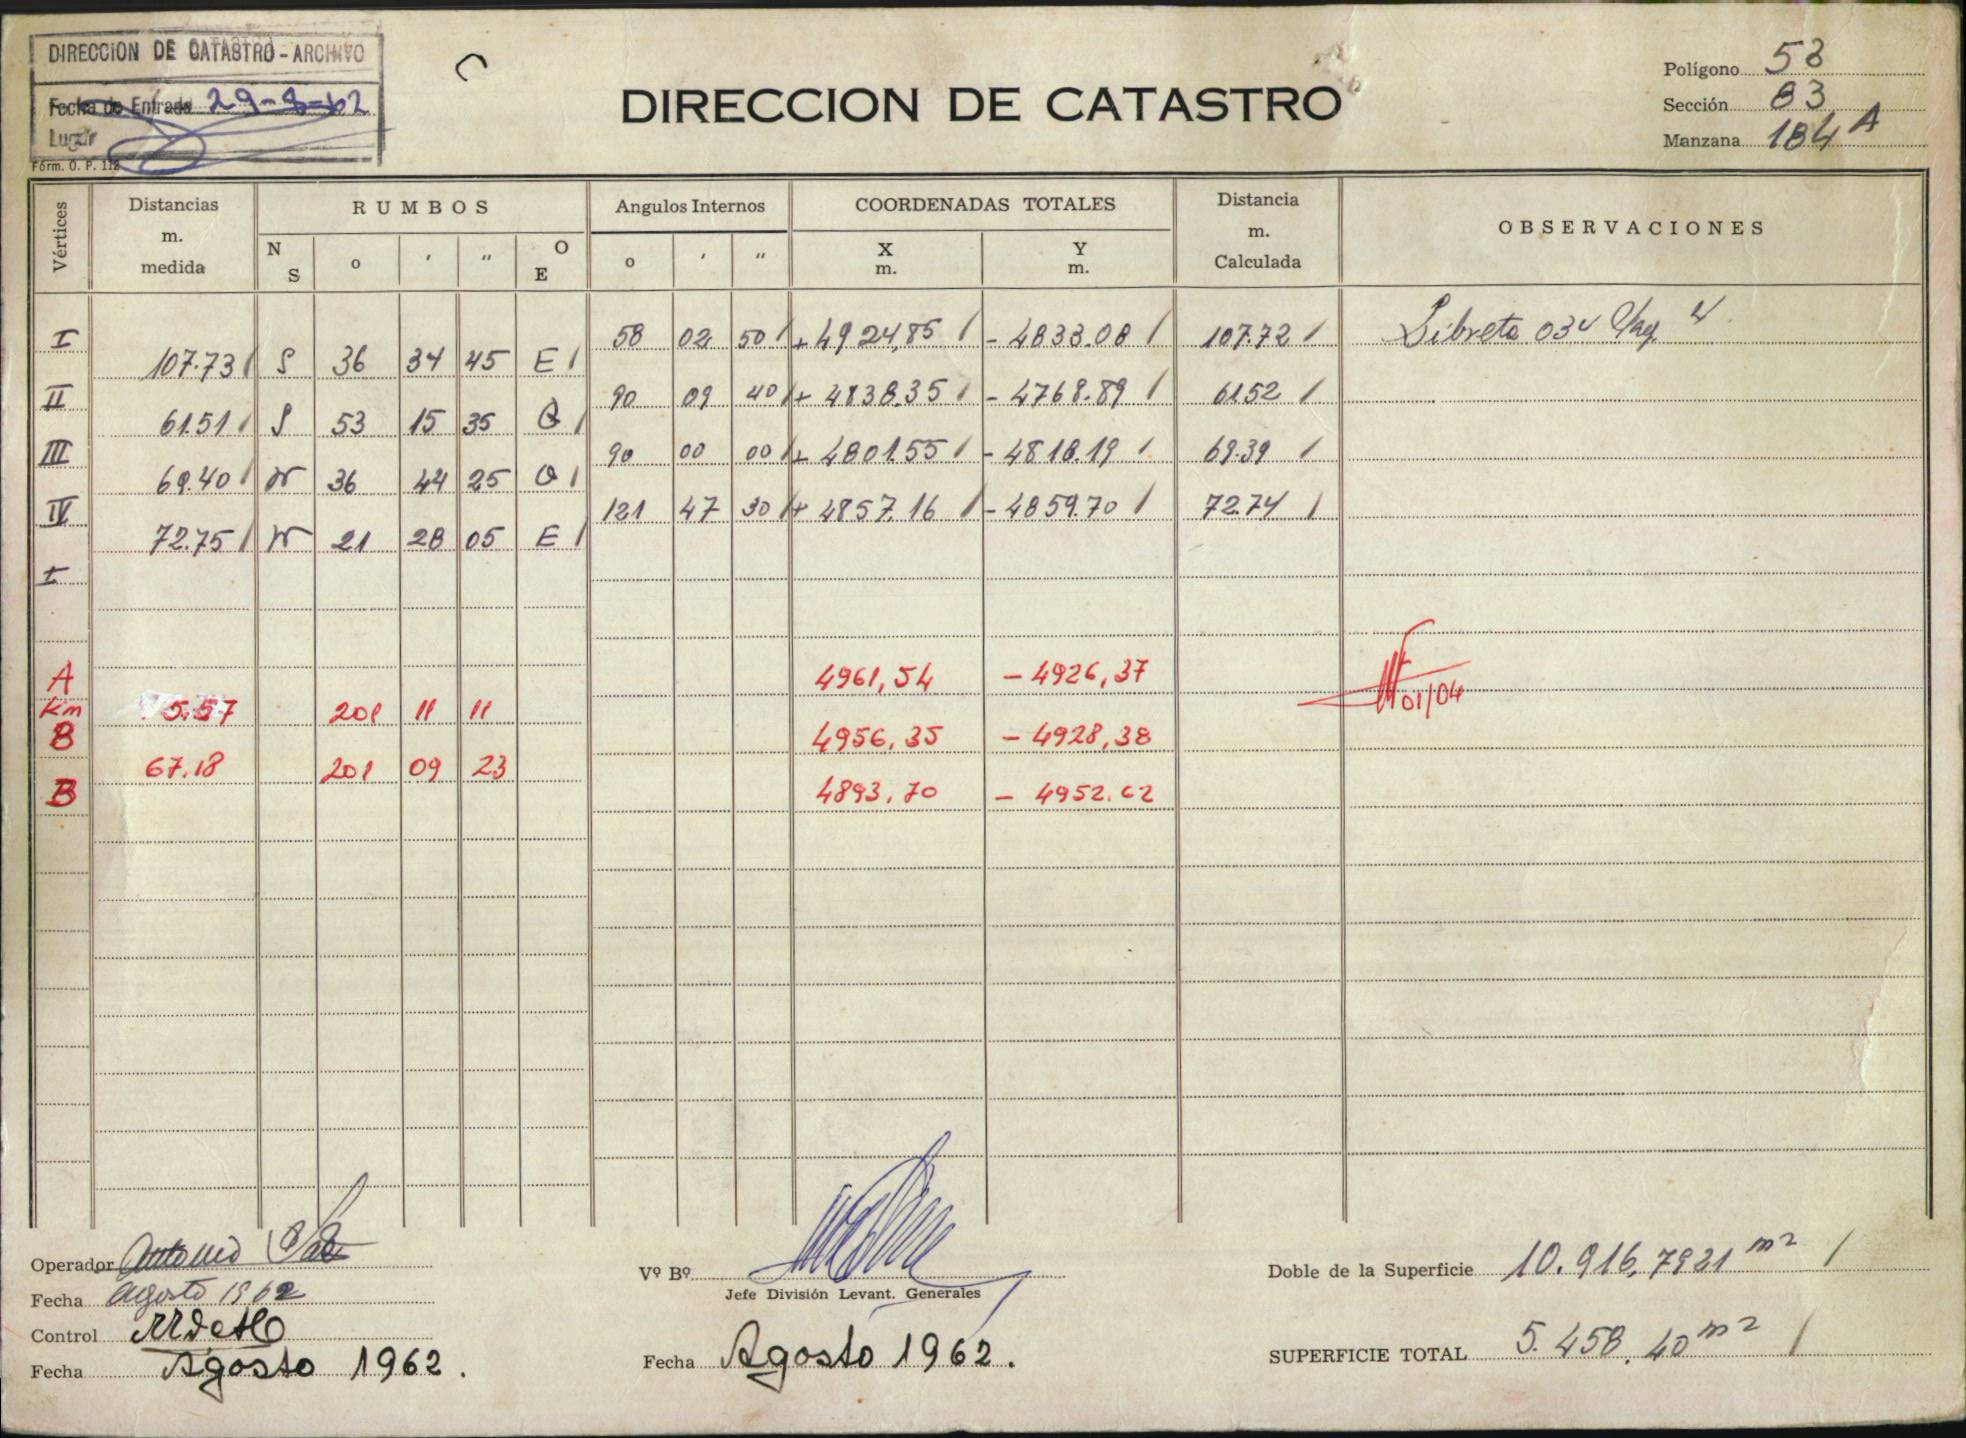 DIRECCION DE CATASTRO - ARCHIVO
Fecha de Entrada 29-8-62
Lugar
Fórm. O. P. 112
DIRECCION DE CATASTRO
Polígono 53
Sección 83
Manzana 184 A
Vértices Distancias m. medida RUMBOS Angulos Internos COORDENADAS TOTALES Distancia m. Calculada OBSERVACIONES
N S o ' " O E o ' " X m. Y m.
I 58 02 50 + 4924,85 - 4833.08 107.72 Libreta 034 Pag. 4
107.73 S 36 34 45 E
II 90 09 40 + 4838.35 - 4768.89 61.52
61.51 S 53 15 35 O
III 90 00 00 + 4801.55 - 4818.19 69.39
69.40 N 36 44 25 O
IV 121 47 30 + 4857.16 - 4859.70 72.74
72.75 N 21 28 05 E
I
A 4961,54 - 4926,37
Km 5.57 201 11 11 01/04
B 4956,35 - 4928,38
67.18 201 09 23
B 4893,70 - 4952.62
Operador Antonio
Fecha Agosto 1962
Control
Fecha Agosto 1962.
Vº Bº
Jefe División Levant. Generales
Fecha Agosto 1962.
Doble de la Superficie 10.916,7921 m2
SUPERFICIE TOTAL 5.458,40 m2